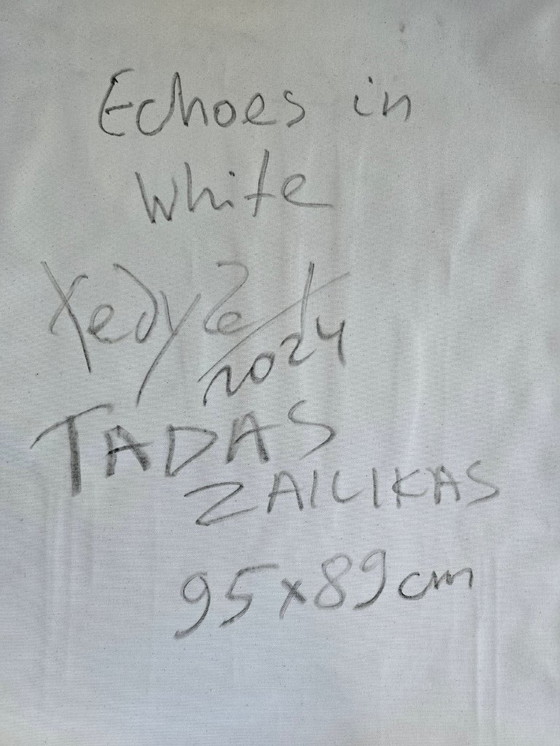 Echoes in
White
2024
TADAS
ZAILIKAS
95x89cm